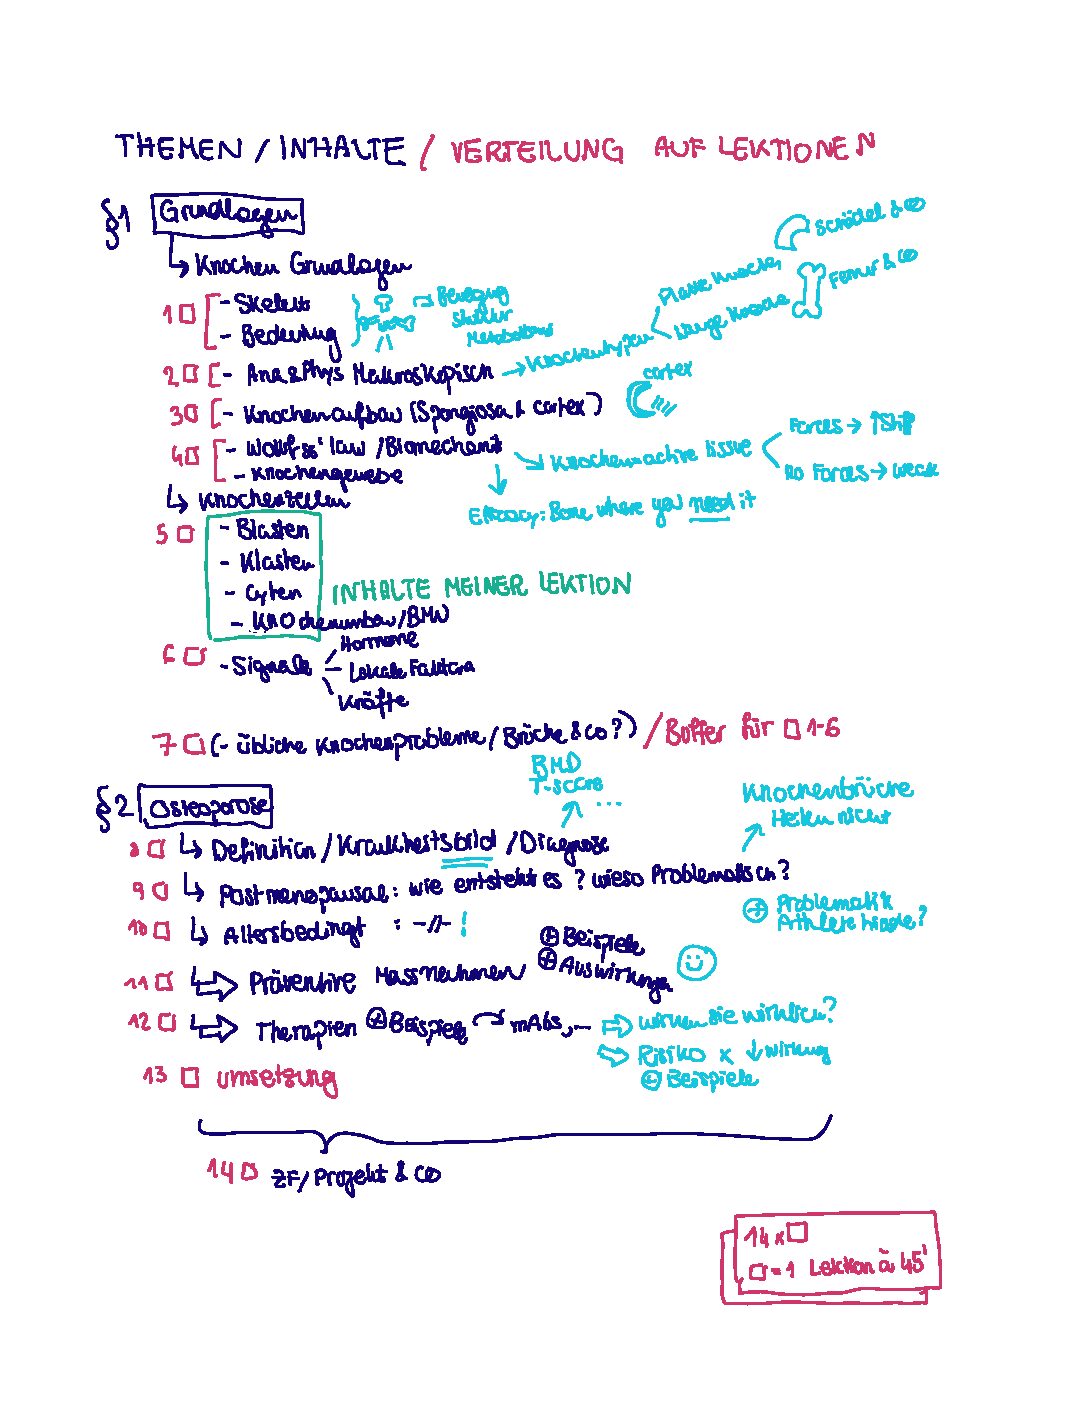 THEMEN / INHALTE / VERTEILUNG AUF LEKTIONEN
§1 Grundlagen
↳ Knochen Grundlagen
1 □ - Skelett
- Bedeutung
→ Bewegung
Struktur
Metabolismus
2 □ - Ana & Phys Makroskopisch → Knochentypen
Platte Knochen
Schädel & CO
Lange Knochen
Femur & CO
3 □ - Knochenaufbau (Spongiosa & Cortex)
cortex
4 □ - Wolff's' law / Biomechanik
- Knochengewebe
→ Knochen = active tissue
Forces → ↑Stiff
No Forces → weak
Efficacy: Bone where you need it
↳ Knochenzellen
5 □ - Blasten
- Klasten
- Cyten
- KNOchenumbau/BMU
INHALTE MEINER LEKTION
6 □ - Signale
Hormone
Lokale Faktoren
Kräfte
7 □ (- übliche Knochenprobleme / Brüche & Co?) / Buffer für □ 1-6
§2 Osteoporose
BMD
T-score
...
8 □ ↳ Definition / Krankheitsbild / Diagnose
Knochenbrüche
Heilen nicht
9 □ ↳ Postmenopausal: wie entsteht es? wieso Problematisch?
10 □ ↳ Altersbedingt : -//- !
⊕ Problematik
11 □ ↳ Präventive Massnahmen
⊕ Beispiele
⊕ Auswirkungen
12 □ ↳ Therapien ⊕ Beispiele → mAbs, ...
⇒ wirken sie wirklich?
⇒ Risiko x ↓ wirkung
⊕ Beispiele
13 □ Umsetzung
14 □ ZF/Projekt & CO
14 x □
□ = 1 Lektion à 45'